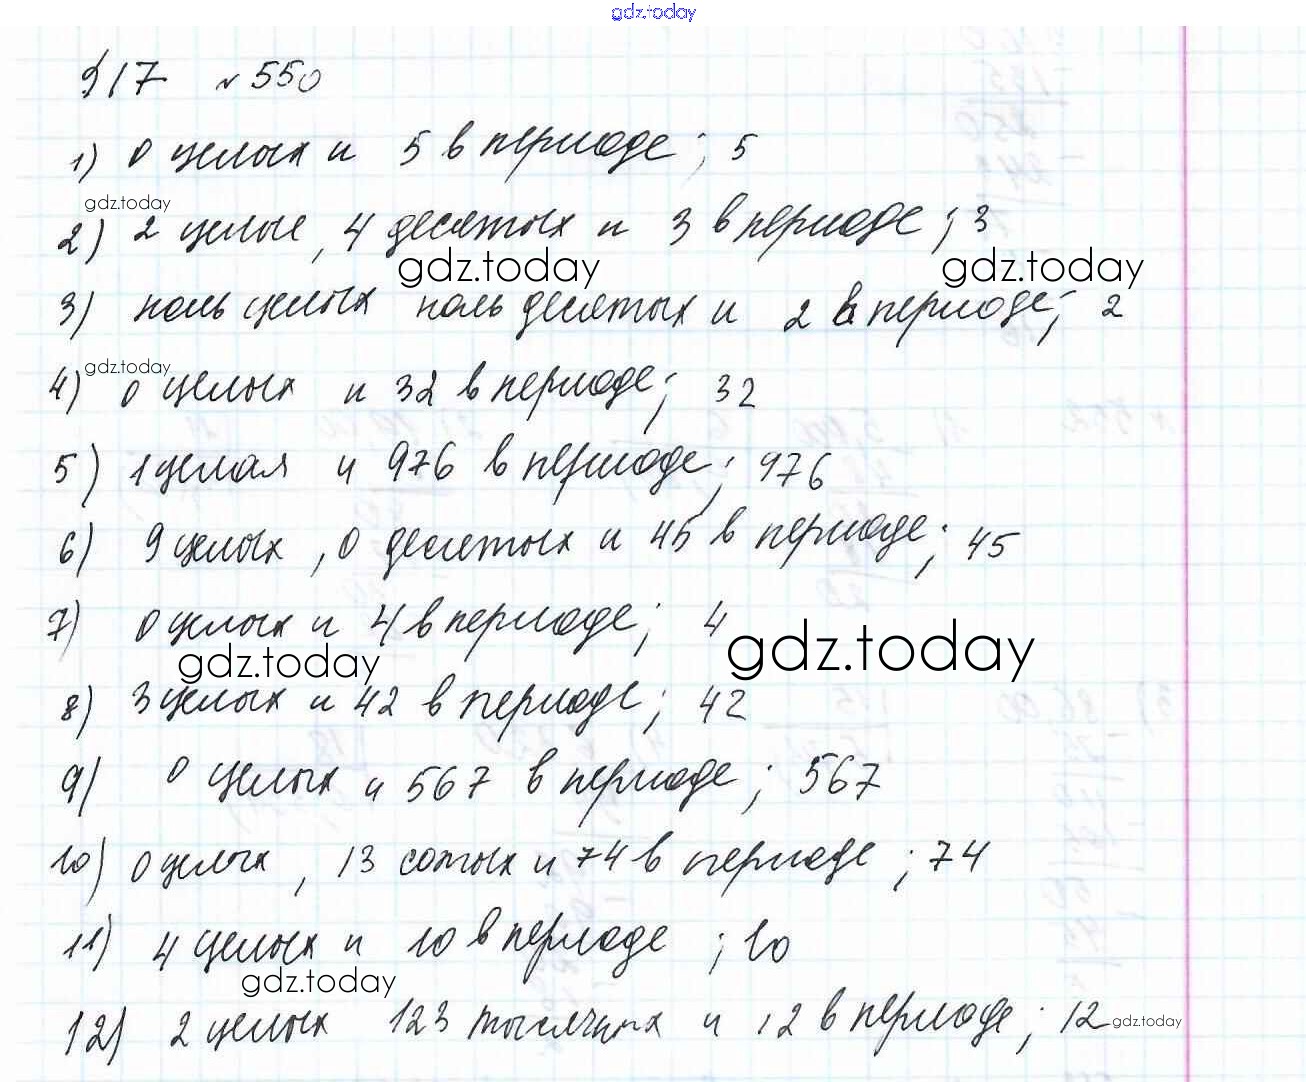 gdz.today
§17 №550
1) 0 целых и 5 в периоде; 5
gdz.today
2) 2 целые, 4 десятых и 3 в периоде; 3
gdz.today gdz.today
3) ноль целых ноль десятых и 2 в периоде; 2
gdz.today
4) 0 целых и 32 в периоде; 32
5) 1 целая и 976 в периоде; 976
6) 9 целых, 0 десятых и 45 в периоде; 45
7) 0 целых и 4 в периоде; 4
gdz.today gdz.today
8) 3 целых и 42 в периоде; 42
9) 0 целых и 567 в периоде; 567
10) 0 целых, 13 сотых и 74 в периоде; 74
11) 4 целых и 10 в периоде; 10
gdz.today
12) 2 целых 123 тысячных и 12 в периоде; 12
gdz.today